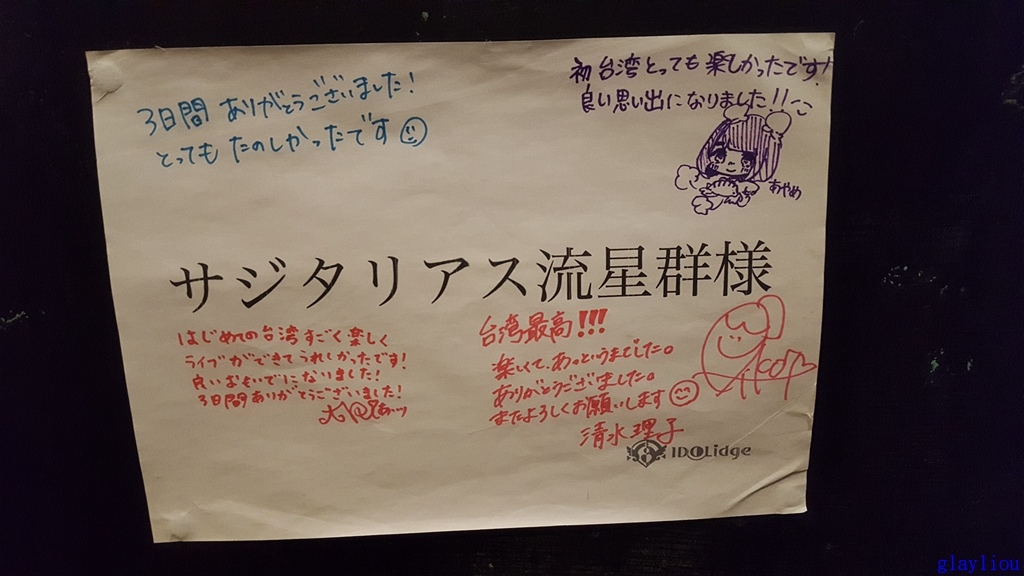 3日間 ありがとうございました!
とっても たのしかったです
初台湾とっても楽しかったです!
良い思い出になりました!!
あやめ
サジタリアス流星群様
はじめての台湾すごく楽しく
ライブができてうれしかったです!
良いおもいでになりました!
3日間ありがとうございました!
台湾最高!!!
楽しくて、あっというまでした。
ありがとうございました。
またよろしくお願いします
清水理子
IDOLidge
glayliou